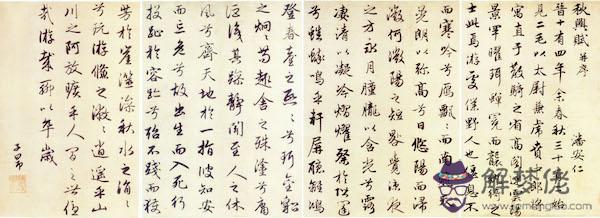 秋興賦 并序
潘安仁
晉十有四年余春秋三十有二始
見二毛以太尉掾兼虎賁中郎將
寓直于散騎之省高閣連雲陽
景罕曜珥蟬冕而襲紈綺之
士此焉遊處僕野人也偃息不
而寒吟兮鴈飄飄而南飛天
晃朗以弥高兮日悠陽而浸
微何微陽之短晷覺涼夜
之方永月朣朧以含光兮露
凄清以凝冷熠燿粲於階闥
兮蟋蟀鳴乎軒屏聽離鴻
登春臺之熙熙兮珥金貂
之炯炯苟趣舍之殊塗兮庸
詎識其躁靜聞至人之休
風兮齊天地於一指彼知安
而忘危兮故出生而入死行
投趾於容跡兮殆不踐而獲
芳於崖澨澡秋水之涓涓
兮玩游儵之潎潎逍遥乎山
川之阿放曠乎人間之世優
哉游哉聊以卒歲
子昂
解梦佬